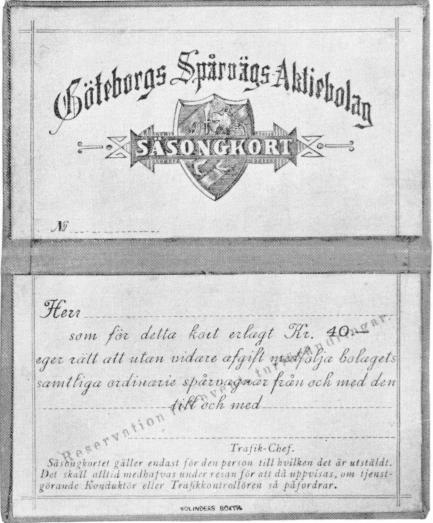 Göteborgs Spårvägs-Aktiebolag
SÄSONGKORT
No
Herr
som för detta kort erlagt Kr. 40.—
eger rätt att utan vidare afgift medfölja bolagets
samtliga ordinarie spårvagnar från och med den
till och med
Reservation
Trafik-Chef.
Säsongkortet gäller endast för den person till hvilken det är utstäldt.
Det skall alltid medhafvas under resan för att då uppvisas, om tjenst-
görande Konduktör eller Trafikkontrollören så påfordrar.
WOLINDERS BOKTR.